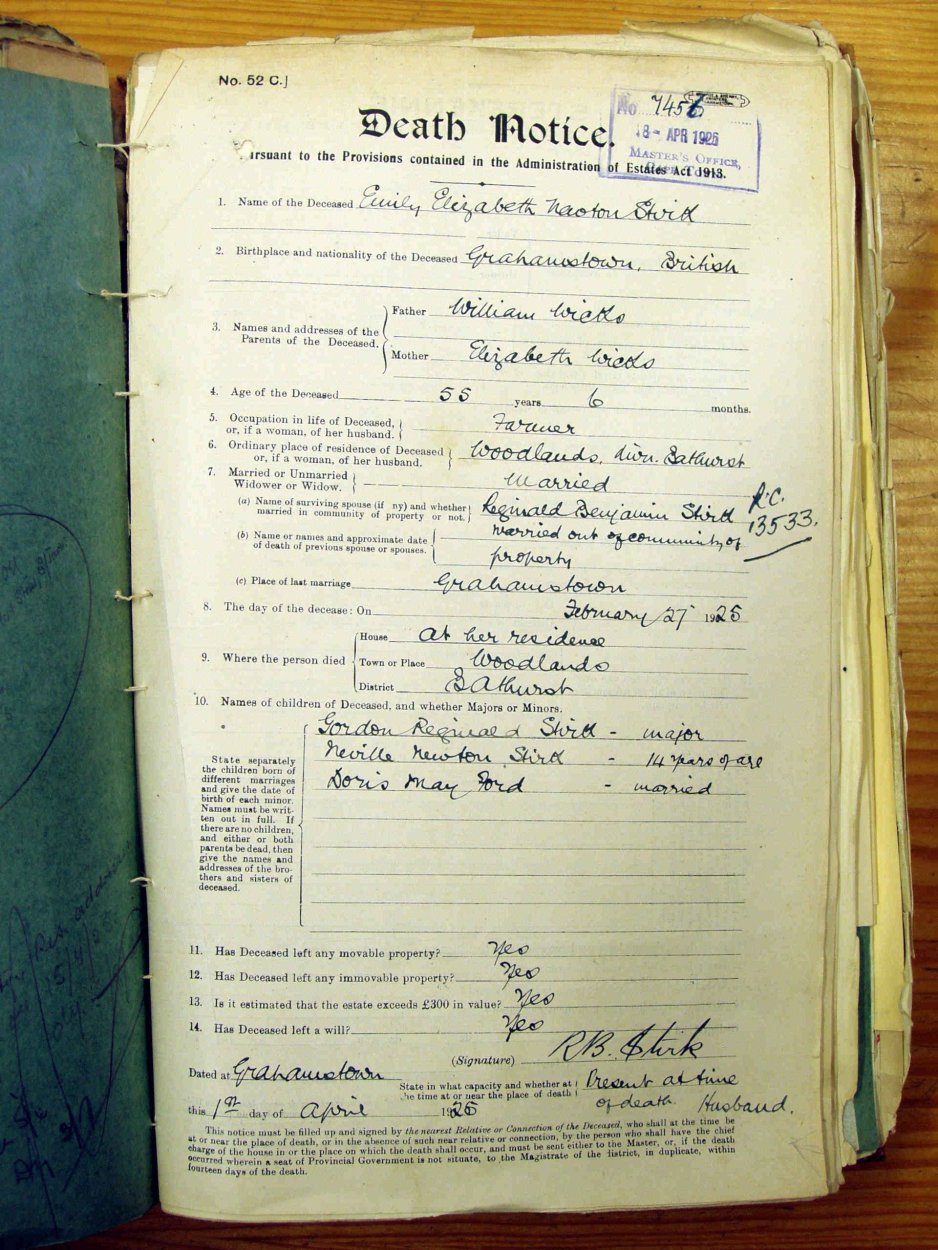 No. 52 C.]
No 7456
18 - APR 1925
MASTER'S OFFICE,
Death Notice.
ursuant to the Provisions contained in the Administration of Estates Act 1913.
1. Name of the Deceased Emily Elizabeth Naoton Stirk
2. Birthplace and nationality of the Deceased Grahamstown, British
3. Names and addresses of the Parents of the Deceased,
Father William Wicks
Mother Elizabeth Wicks
4. Age of the Deceased 55 years 6 months.
5. Occupation in life of Deceased, or, if a woman, of her husband. Farmer
6. Ordinary place of residence of Deceased or, if a woman, of her husband. Woodlands, Divn. Bathurst
7. Married or Unmarried Widower or Widow. Married
(a) Name of surviving spouse (if ny) and whether married in community of property or not, Reginald Benjamin Stirk
married out of community of
(b) Name or names and approximate date of death of previous spouse or spouses. property
R.C.
13533.
(c) Place of last marriage Grahamstown
8. The day of the decease: On February 27 1925
9. Where the person died
House At her residence
Town or Place Woodlands
District Bathurst
10. Names of children of Deceased, and whether Majors or Minors.
Gordon Reginald Stirk - major
Neville Newton Stirk - 14 years of age
Doris May Ford - married
State separately
the children born of
different marriages
and give the date of
birth of each minor.
Names must be writ-
ten out in full. If
there are no children,
and either or both
parents be dead, then
give the names and
addresses of the bro-
thers and sisters of
deceased.
11. Has Deceased left any movable property? Yes
12. Has Deceased left any immovable property? Yes
13. Is it estimated that the estate exceeds £300 in value? Yes
14. Has Deceased left a will? Yes
(Signature) R.B. Stirk
Dated at Grahamstown
State in what capacity and whether at the time at or near the place of death Present at time
of death. Husband.
this 1st day of April 1925
This notice must be filled up and signed by the nearest Relative or Connection of the Deceased, who shall at the time be
at or near the place of death, or in the absence of such near relative or connection, by the person who shall have the chief
charge of the house in or the place on which the death shall occur, and must be sent either to the Master, or, if the death
occurred wherein a seat of Provincial Government is not situate, to the Magistrate of the district, in duplicate, within
fourteen days of the death.